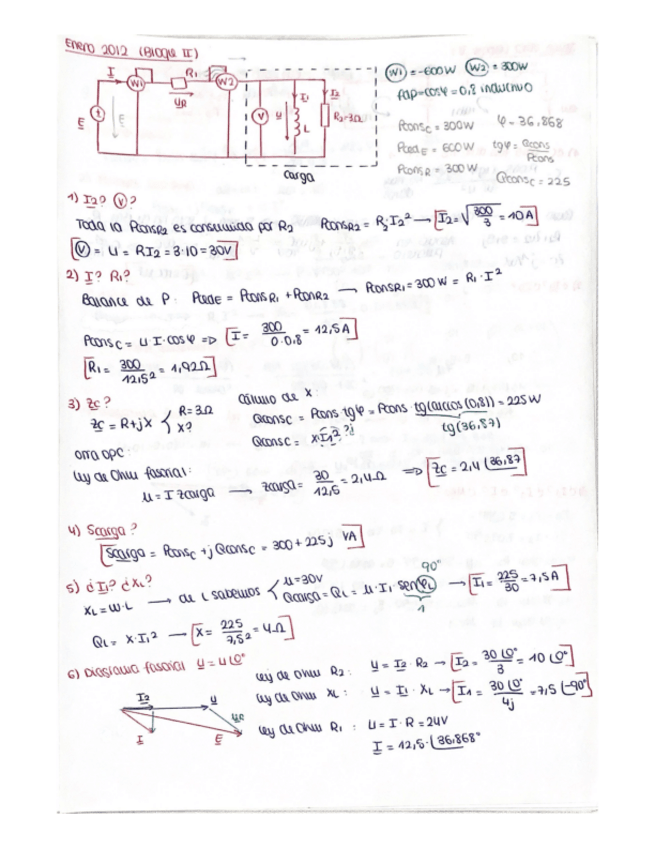 ENERO 2012 (BLOQUE II)
I W1 R1 W2 I1 I2
UR
E E V U L R2=3Ω
carga
W1 = -600W W2 = 300W
FAP = cosφ = 0,8 inductivo
PconsC = 300W φ = 36,868
PcedE = 600W tgφ = Qcons/Pcons
PconsR = 300W QconsC = 225
1) I2? V?
Toda la PconsR2 es consumida por R2 PconsR2 = R2·I2² → I2 = √300/3 = 10A
V = U = RI2 = 3·10 = 30V
2) I? R1?
Balance de P: PcedE = PconsR1 + PconR2 → PconsR1 = 300W = R1·I²
PconsC = U I·cosφ => I = 300/0·0,8 = 12,5A
R1 = 300/12,5² = 1,92Ω
3) Zc?
Zc = R+jX { R=3Ω X?
cálculo de X
QconsC = Pcons tgφ = Pcons tg(arccos(0,8)) = 225W
tg(36,87)
QconsC = X·I1² ?¿
otra opc:
Ley de Ohm fasorial:
U = I Zcarga → Zcarga = 30/12,5 = 2,4Ω => Zc = 2,4 ∠36,87
4) Scarga?
Scarga = PconsC + j QconsC = 300 + 225j VA
5) ¿I1? ¿XL?
XL = W·L → de L sabemos { U=30V
Qcarga = QL = U·I1·sen φL → I1 = 225/30 = 7,5A
90°
1
QL = X·I1² → X = 225/7,5² = 4Ω
6) Diagrama fasorial U = U∠0°
Ley de Ohm R2: U = I2·R2 → I2 = 30∠0°/3 = 10∠0°
Ley de Ohm XL: U = I1·XL → I1 = 30∠0°/4j = 7,5∠-90°
Ley de Ohm R1: U = I·R = 24V
I = 12,5·∠36,868°
I2 U UR I E